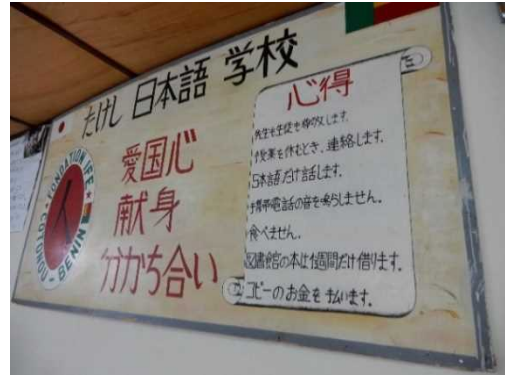 たけし 日本語 学校
愛国心
献身
分かち合い
FONDATION IFE
COTONOU BENIN
心得
先生も生徒も尊敬します。
授業を休むとき、連絡します。
日本語だけ話します。
携帯電話の音を鳴らしません。
食べません。
図書館の本は1週間だけ借ります。
コピーのお金を払います。